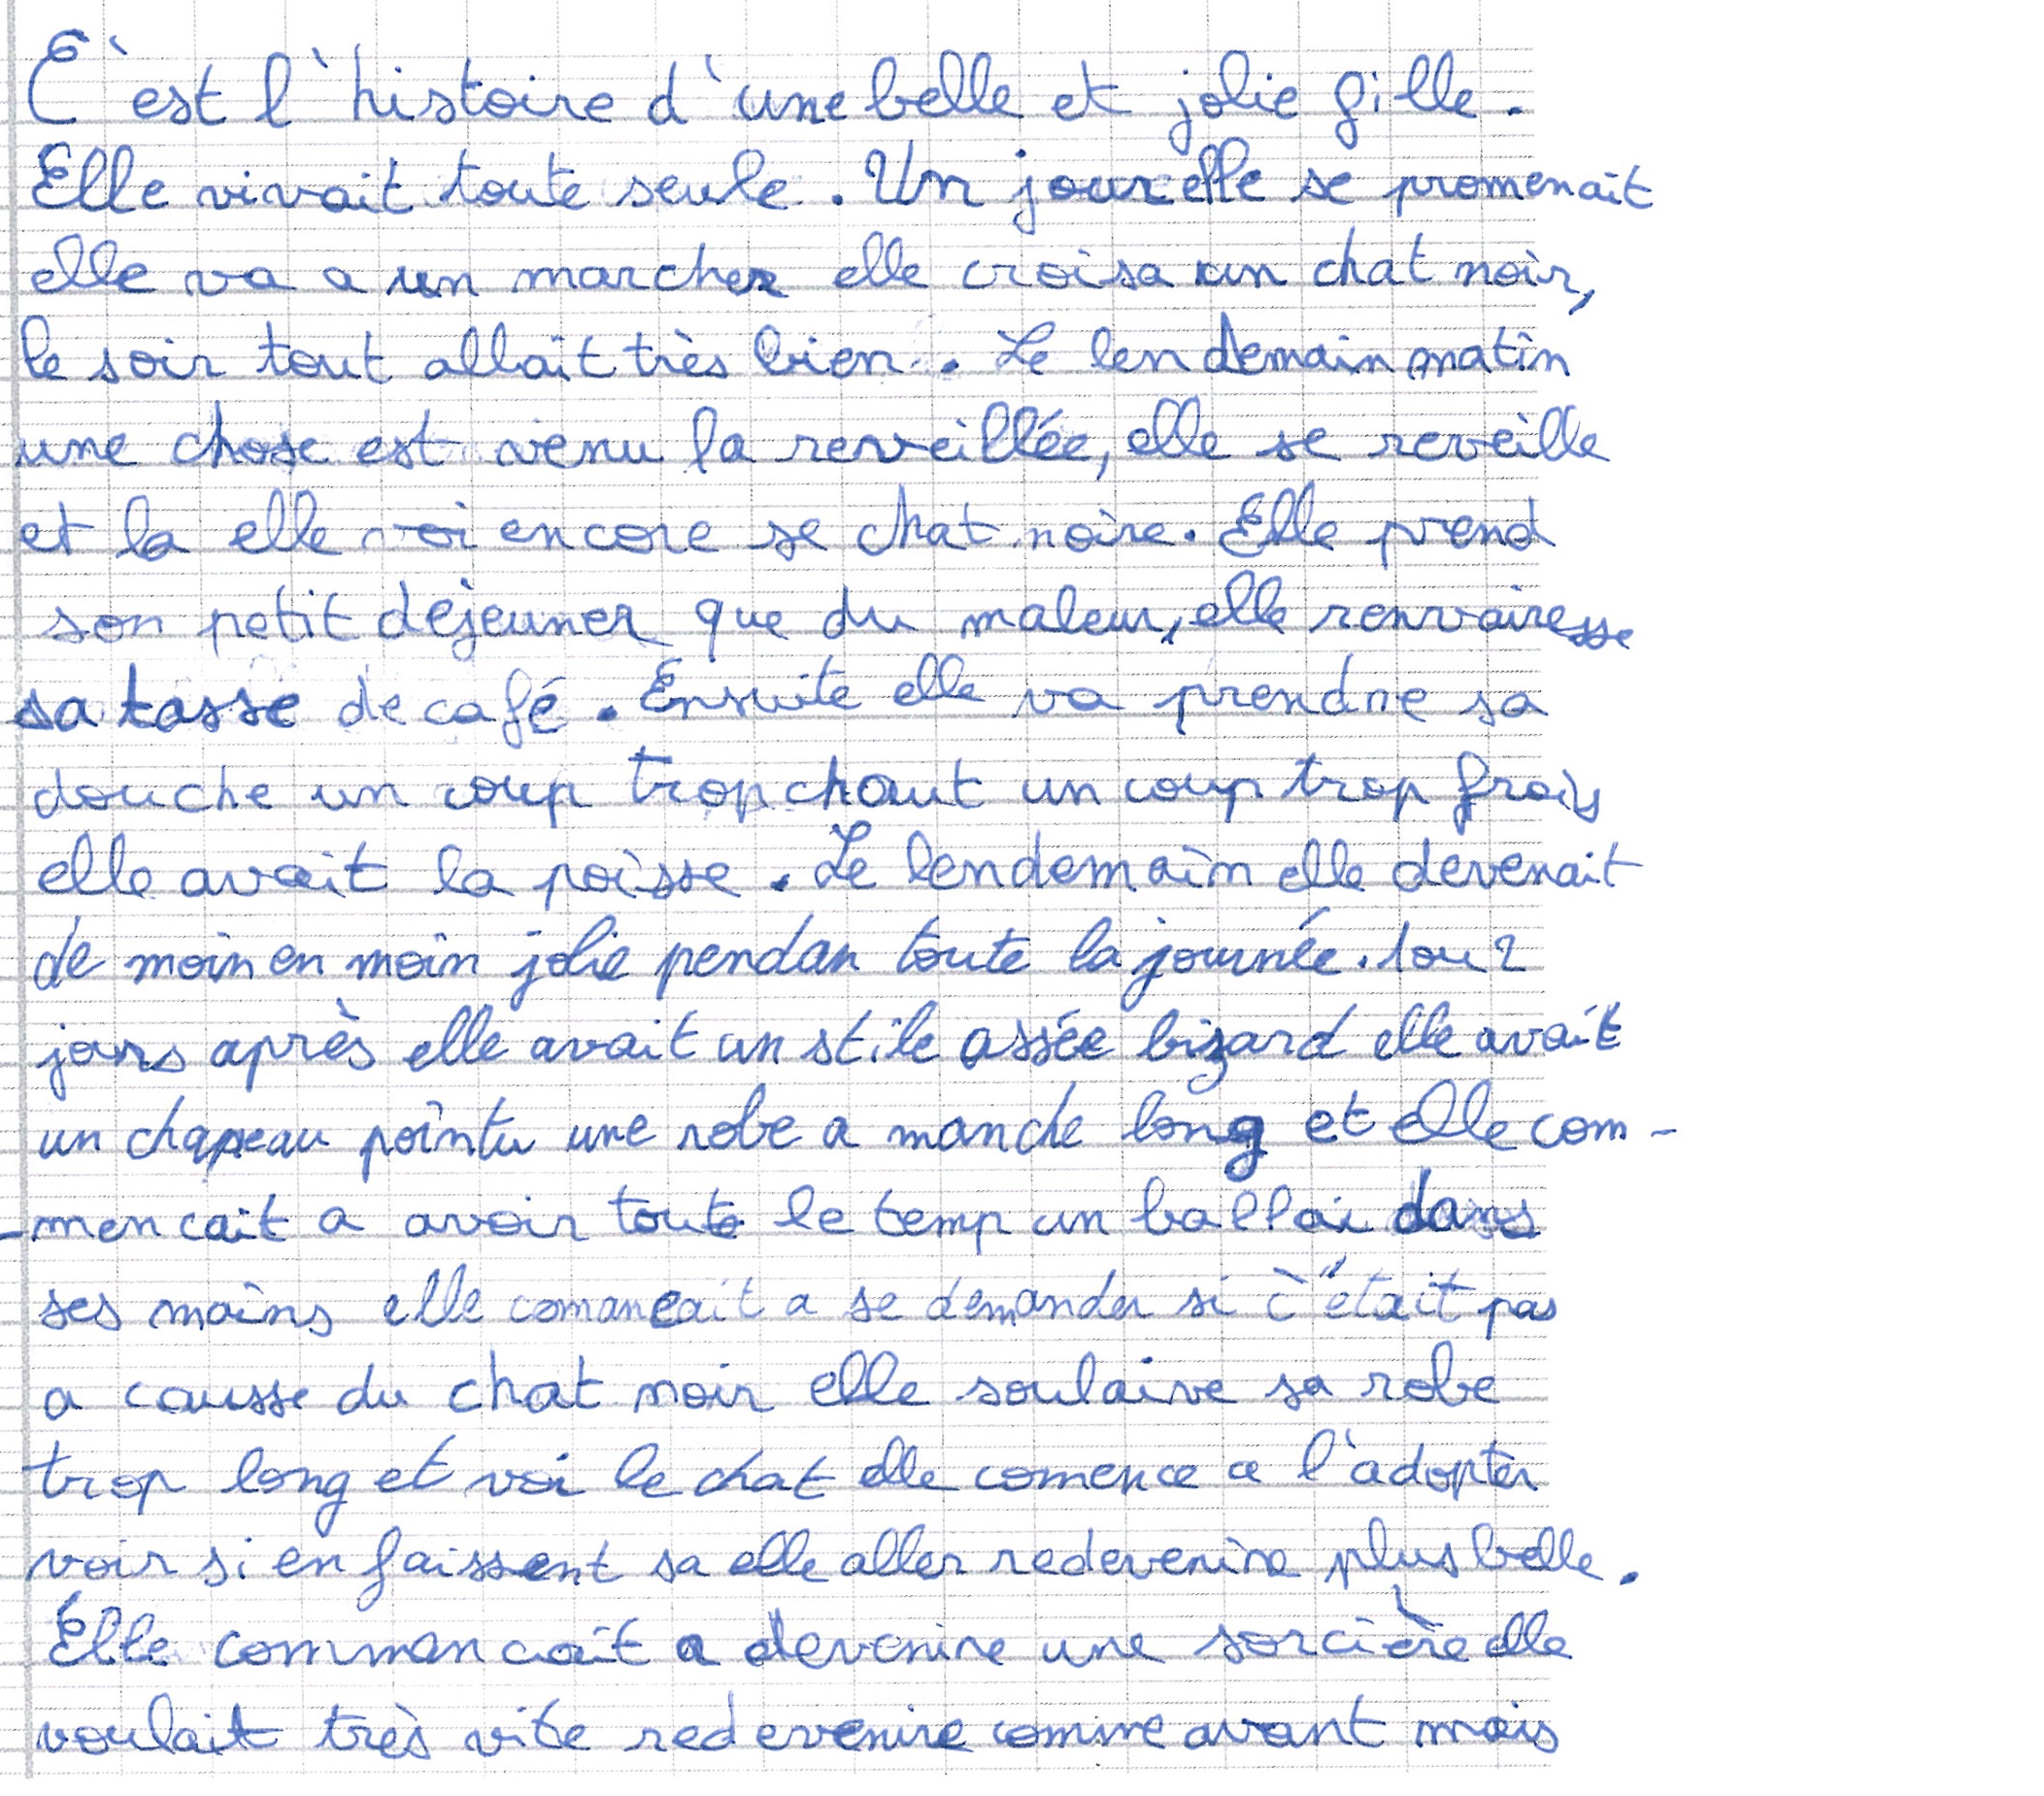 C'est l'histoire d'une belle et jolie fille.
Elle vivait toute seule. Un jour elle se promenait
elle va a un marcher elle croisa un chat noir,
le soir tout allait très bien. Le lendemain matin
une chose est venu la reveillée, elle se reveille
et la elle voi encore se chat noire. Elle prend
son petit dejeuner que du maleur, elle renvairesse
sa tasse de café. Ensuite elle va prendre sa
douche un coup trop chaut un coup trop frais
elle avait la poisse. Le lendemain elle devenait
de moin en moin jolie pendan toute la journée. 1 ou 2
jours après elle avait un stile assée bizard elle avait
un chapeau pointu une robe a manche long et elle com-
-mencait a avoir toute le temp un ballai dans
ses mains elle comancait a se demander si c'était pas
a causse du chat noir elle soulaive sa robe
trop long et voi le chat elle comence a l'adopter
voir si en faissent sa elle aller redevenire plus belle.
Elle commencait a devenire une sorcière elle
voulait très vite redevenire comme avant mais